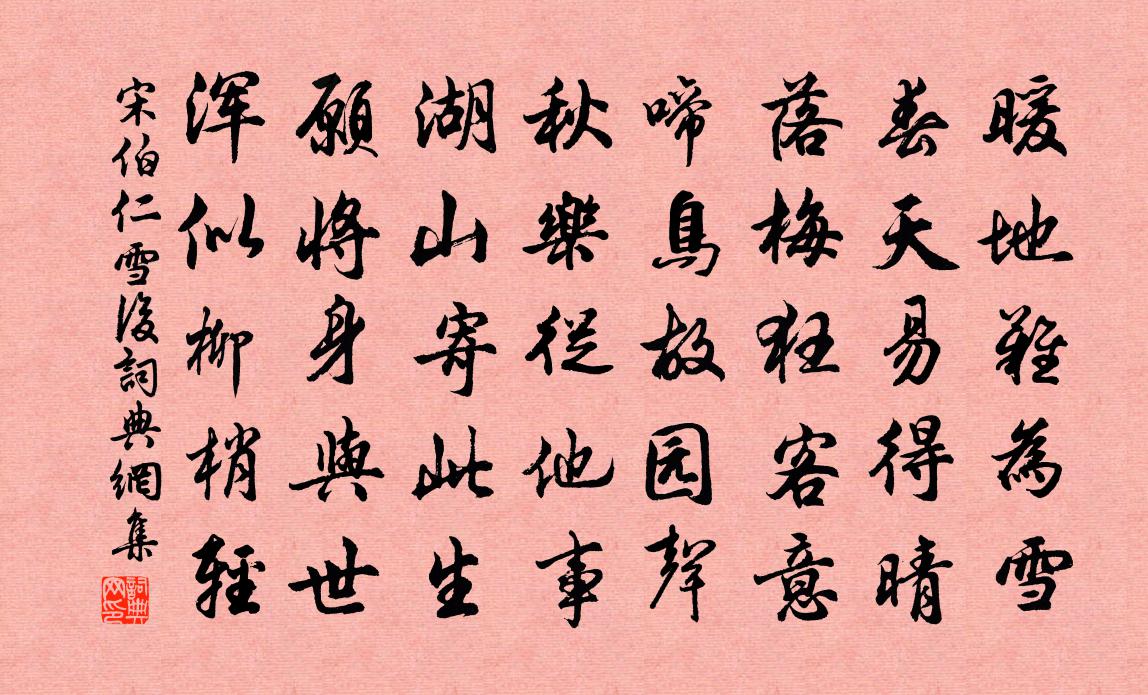 暖地難為雪
春天易得晴
落梅狂客意
啼鳥故园聲
秋樂從他事
湖山寄此生
願將身與世
渾似柳梢輕
宋伯仁雪後詞典網集
詞典網印